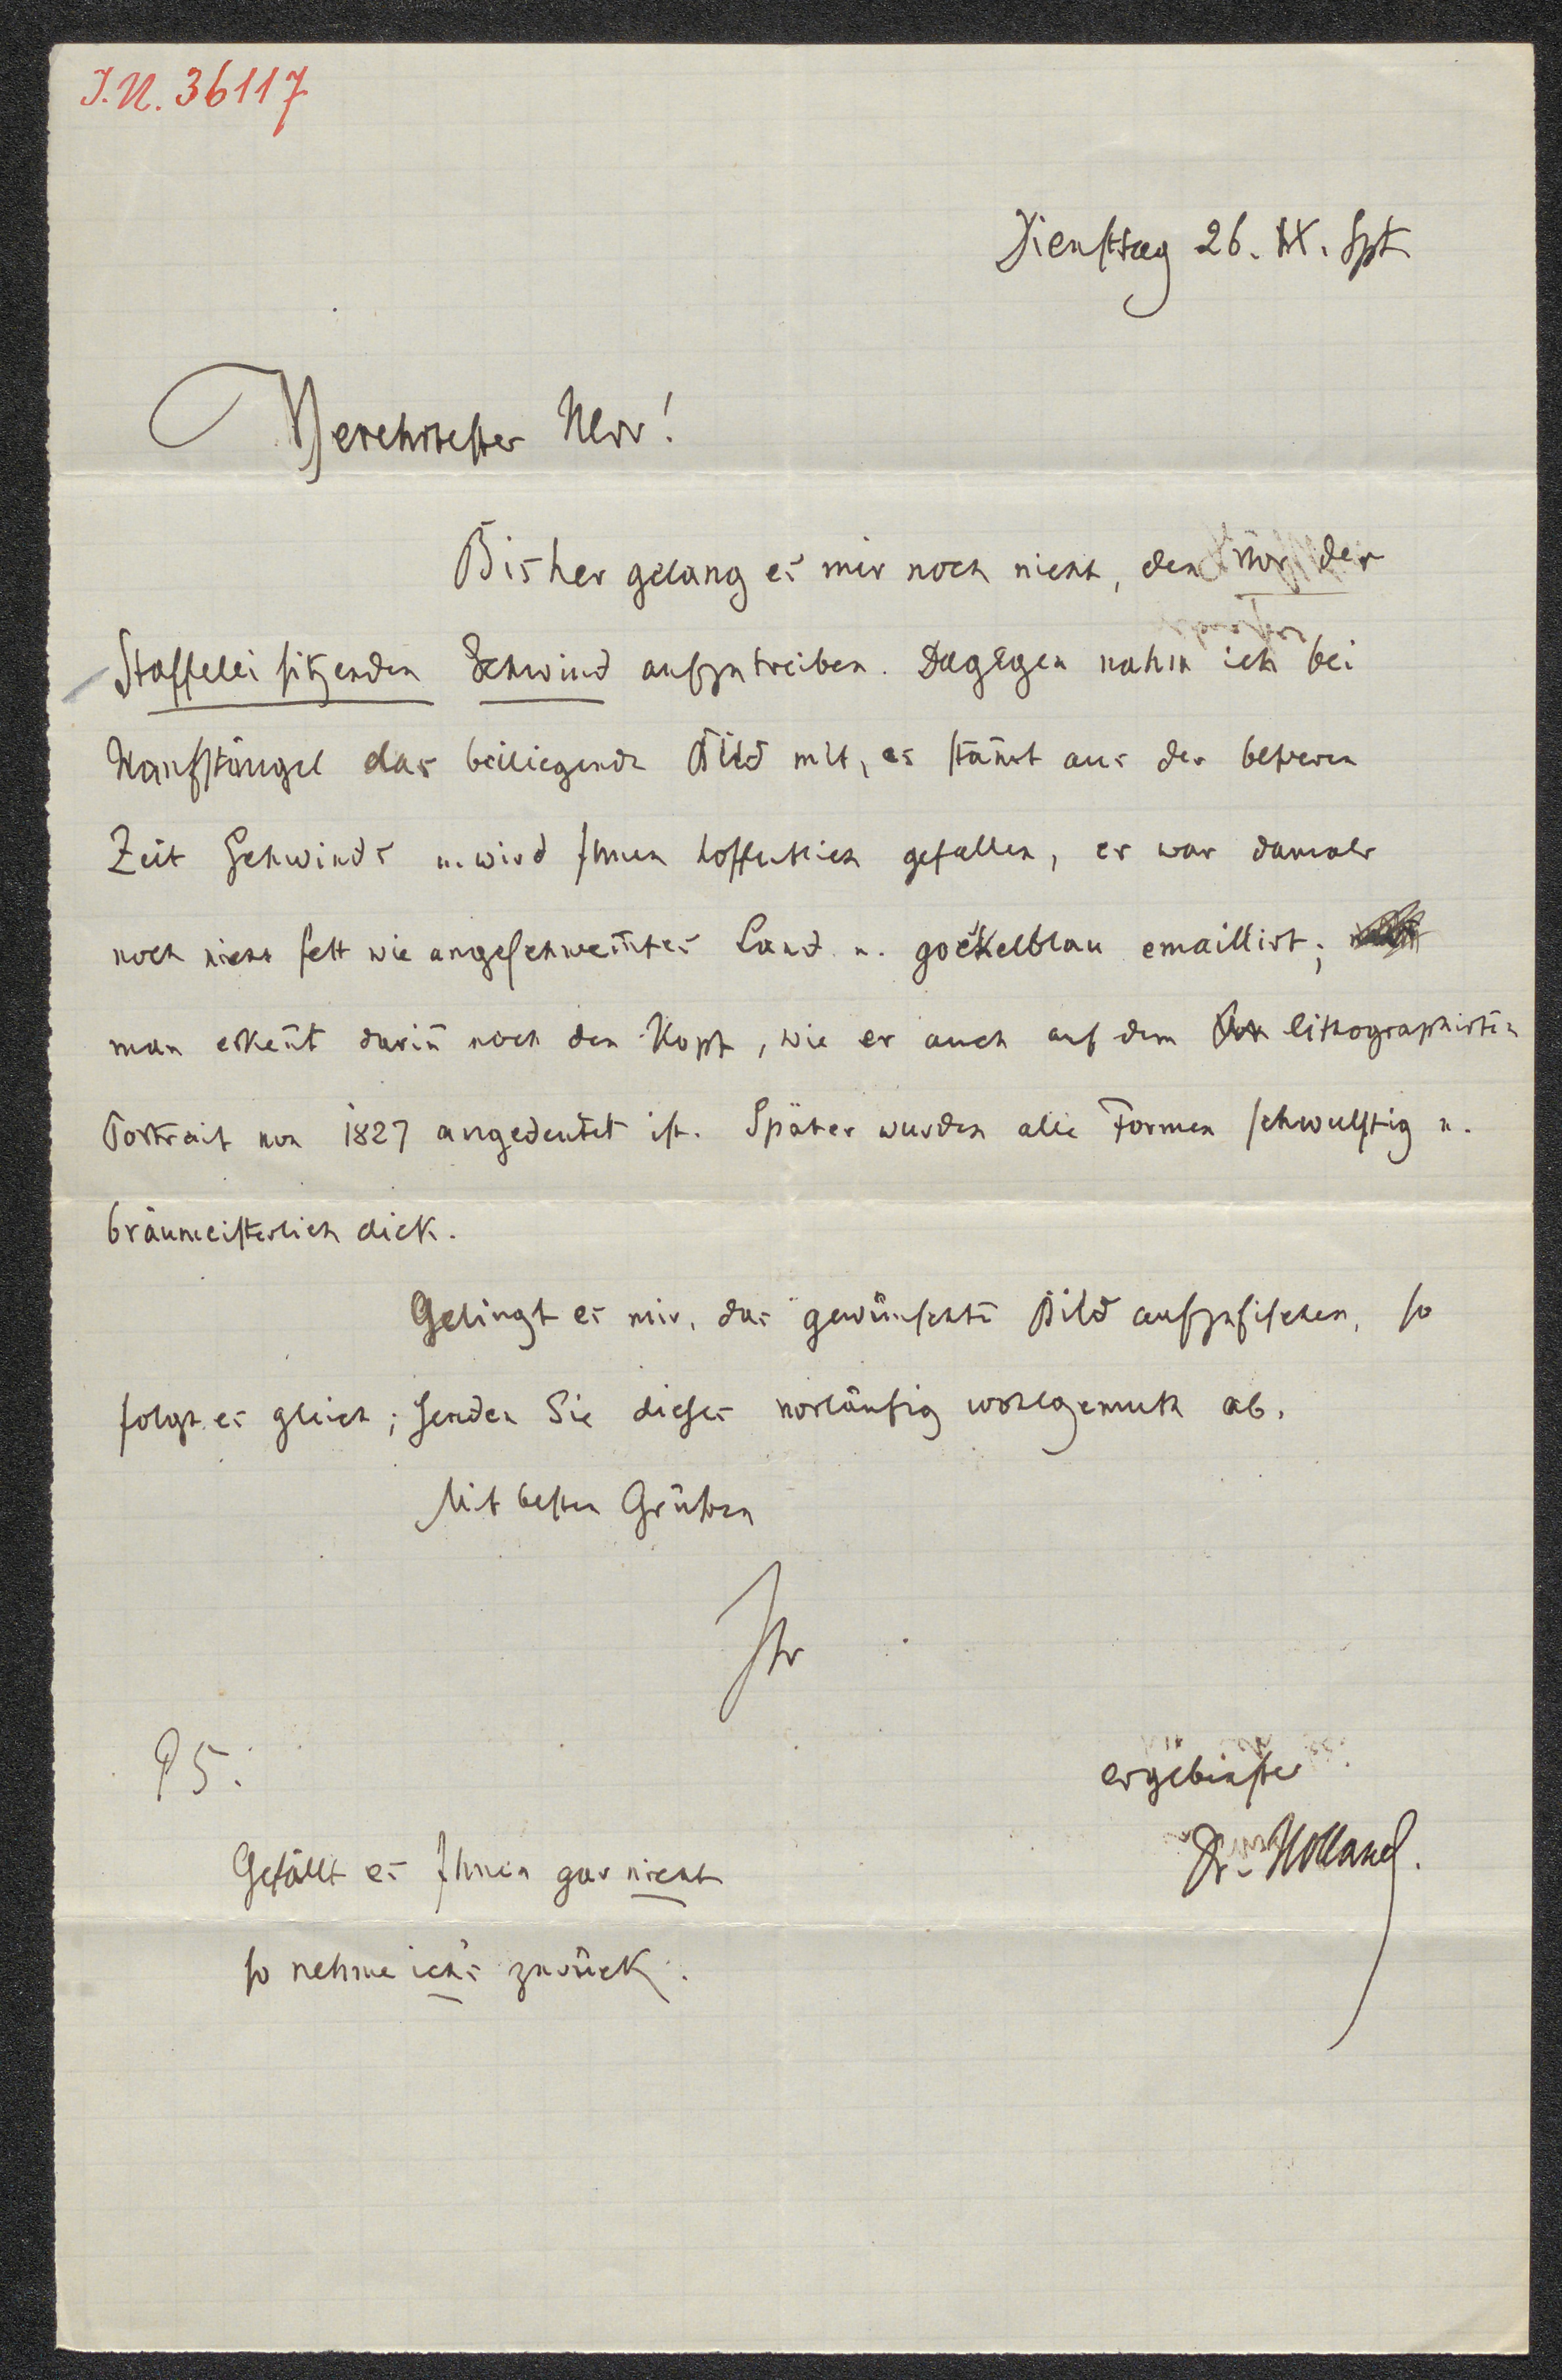 J.N. 36117
Dienstag 26. IX. Spt
Verehrtester Herr!
Bisher gelang es mir noch nicht, den vor der
Staffelei sitzenden Schwind aufzutreiben. Dagegen nahm ich bei
Hanfstängel das beiliegende Bild mit, es stam̅t aus der besseren
Zeit Schwinds u. wird Ihnen hoffentlich gefallen, er war damals
noch nicht fett wie angeschwem̅tes Land u. gockelblau emaillirt;
man erken̅t darin̅ noch den Kopf, wie er auch auf dem lithographirten
Portrait von 1827 angedeutet ist. Später wurden alle Formen schwulstig u.
bräumeisterlich dick.
Gelingt es mir, das gewünschte Bild aufzufischen, so
folgt es gleich; senden Sie dieses vorläufig wohlgemuth ab.
Mit besten Grüßen
Ihr
ergebenster
Dr. Holland.
PS:
Gefällt es Ihnen gar nicht
so nehme ich's zurück.